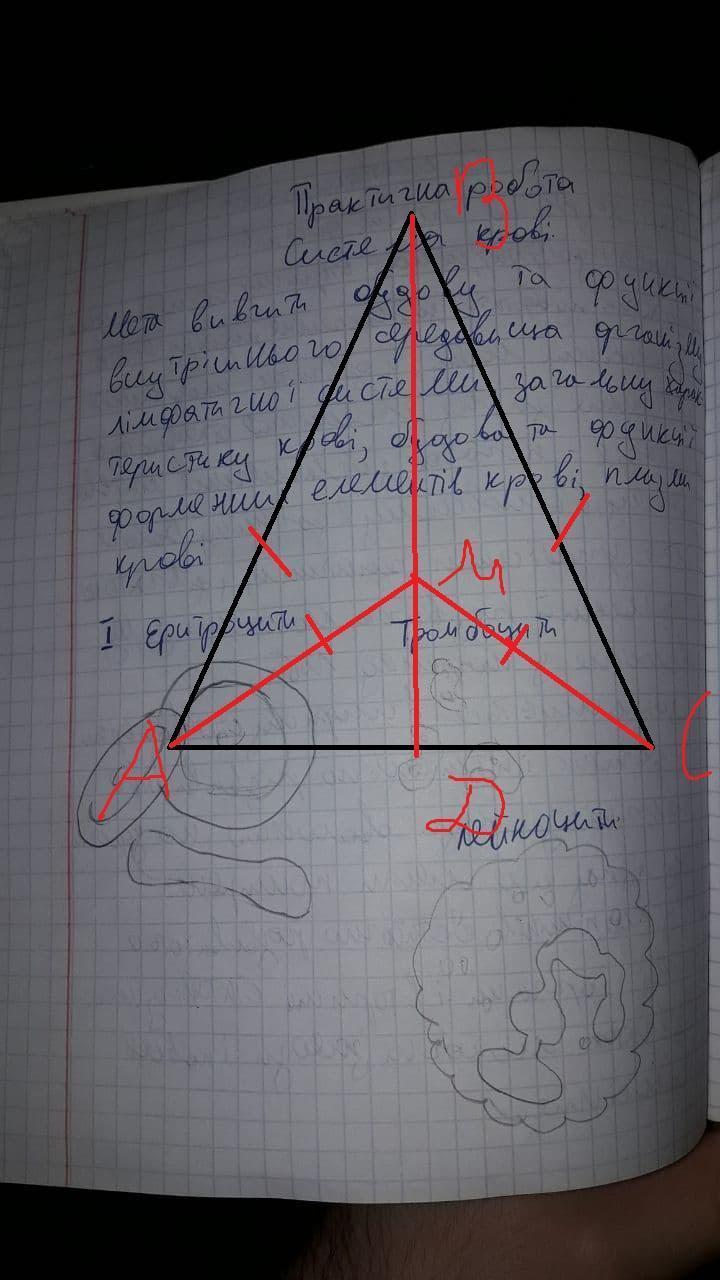 Практична робота
Система крові.
Мета вивчити будову та функції
внутрішнього середовища організму
лімфатичної системи загальну харак
теристику крові, будова та функції
формених елементів крові, плазми
крові
I Еритроцити Тромбоцити
лейкоцити
В
М
А
С
D